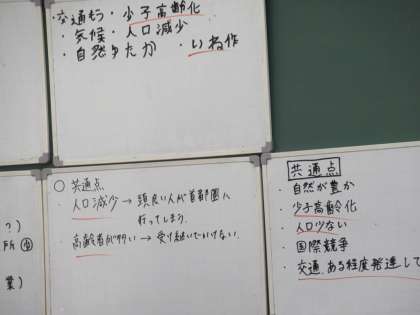 ・交通もう・少子高齢化
・気候・人口減少
・自然ゆたか ・いね作
○共通点
・人口減少→頭良い人が首都圏に
行ってしまう
・高齢者が多い→受け継いでいけない
?)
所
業)
共通点
・自然が豊か
・少子高齢化
・人口少ない
・国際競争
・交通、ある程度発達して